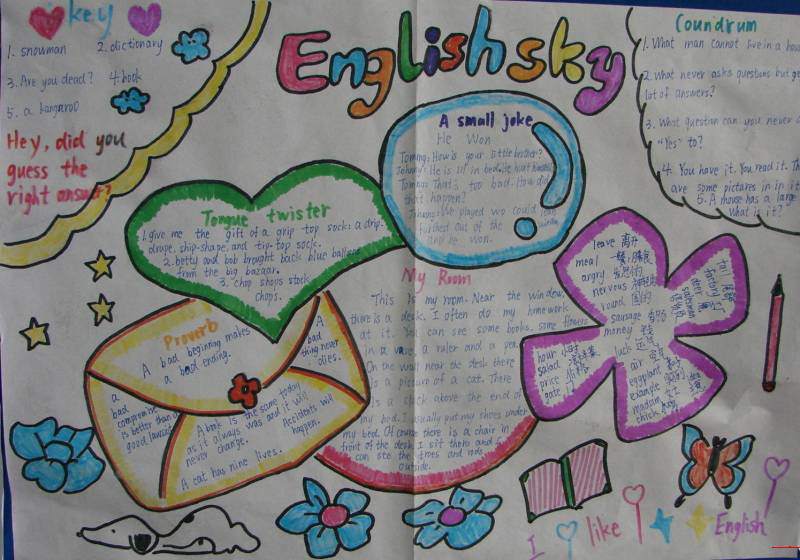 key
1. snowman 2. dictionary
3. Are you dead? 4. book
5. a kangaroo
Hey, did you
guess the
right answer?
English sky
Coundrum
1. What man cannot live in a hous
2. what never asks questions but ge
lot of answers?
3. What question can you never a
"Yes" to?
4. You have it. You read it. Th
are some pictures in it
5. A mouse has a large
What is it?
A small joke
He Won
Tommy: How is your little brother?
Johnny: He is ill in bed. He hurt himself.
Tommy: That's too bad. How did
that happen?
Johnny: We played who could lean
furthest out of the window
and he won.
Tongue twister
1. give me the gift of a grip top sock: a drip-
drape, ship-shape, and tip-top sock.
2. betty and bob brought back blue balloons
from the big bazaar.
3. chop shops stock
chops.
Proverb
A bad beginning makes
a bad ending.
A
bad
thing never
dies.
a
bad
compromise
is better than a
good lawsuit
A book is the same today
as it always was and it will
never change.
Accidents will
happen.
A cat has nine lives.
My Room
This is my room. Near the window,
there is a desk. I often do my homework
at it. You can see some books, some flowers
in a vase, a ruler and a pen.
On the wall near the desk there
is a picture of a cat. There
is a clock above the end of
my bed. I usually put my shoes under
my bed. Of course there is a chair in
front of the desk. I sit there and I
can see the trees and roads
outside.
leave 离开
meal 一餐
angry 发怒的
nervous
round 圆的
sausage
money 钱
tail
factory 工厂
deer 鹿
salesman
hour 小时
salad
price
gate
luck
air
eggplant
example
madam
chick
I like English